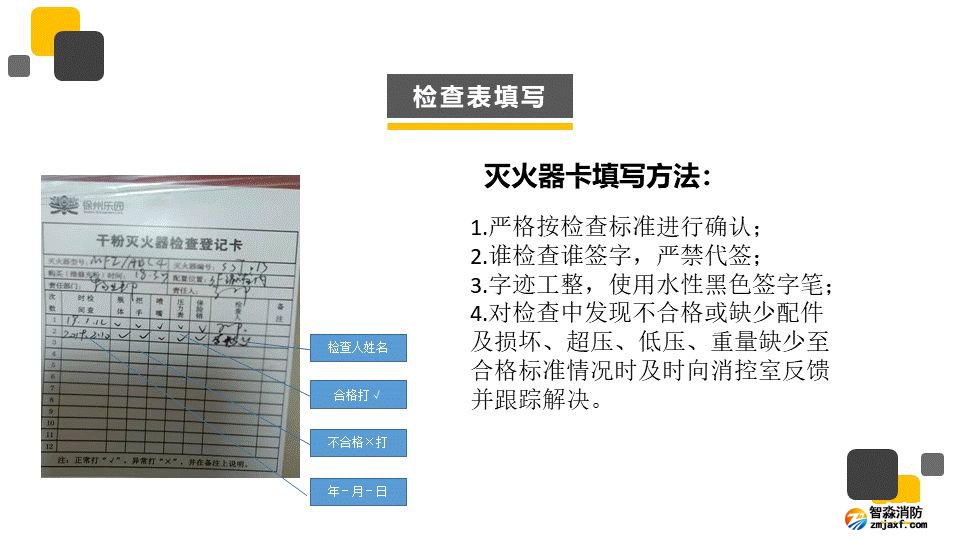 检查表填写
灭火器卡填写方法：
1.严格按检查标准进行确认；
2.谁检查谁签字，严禁代签；
3.字迹工整，使用水性黑色签字笔；
4.对检查中发现不合格或缺少配件
及损坏、超压、低压、重量缺少至
合格标准情况时及时向消控室反馈
并跟踪解决。
保州乐园
干粉灭火器检查登记卡
灭火器型号：MFZ/ABC4 灭火器编号：
购买（维修充粉）时间： 配置位置：
责任部门： 责任人：
次数 时间 检查 瓶体 把手 喷嘴 压力表 保险销 检查人 备注
1 √ √ √ √ √
2 √ √ √ √ √
3
4
5
6
7
8
9
10
11
12
注：正常打“√”，异常打“×”，并在备注上说明。
检查人姓名
合格打√
不合格×打
年－月－日
智淼消防
zmjaxf.com